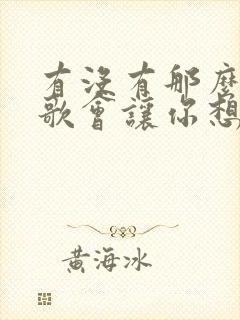 有沒有那麼
歌會讓你想
黃海冰